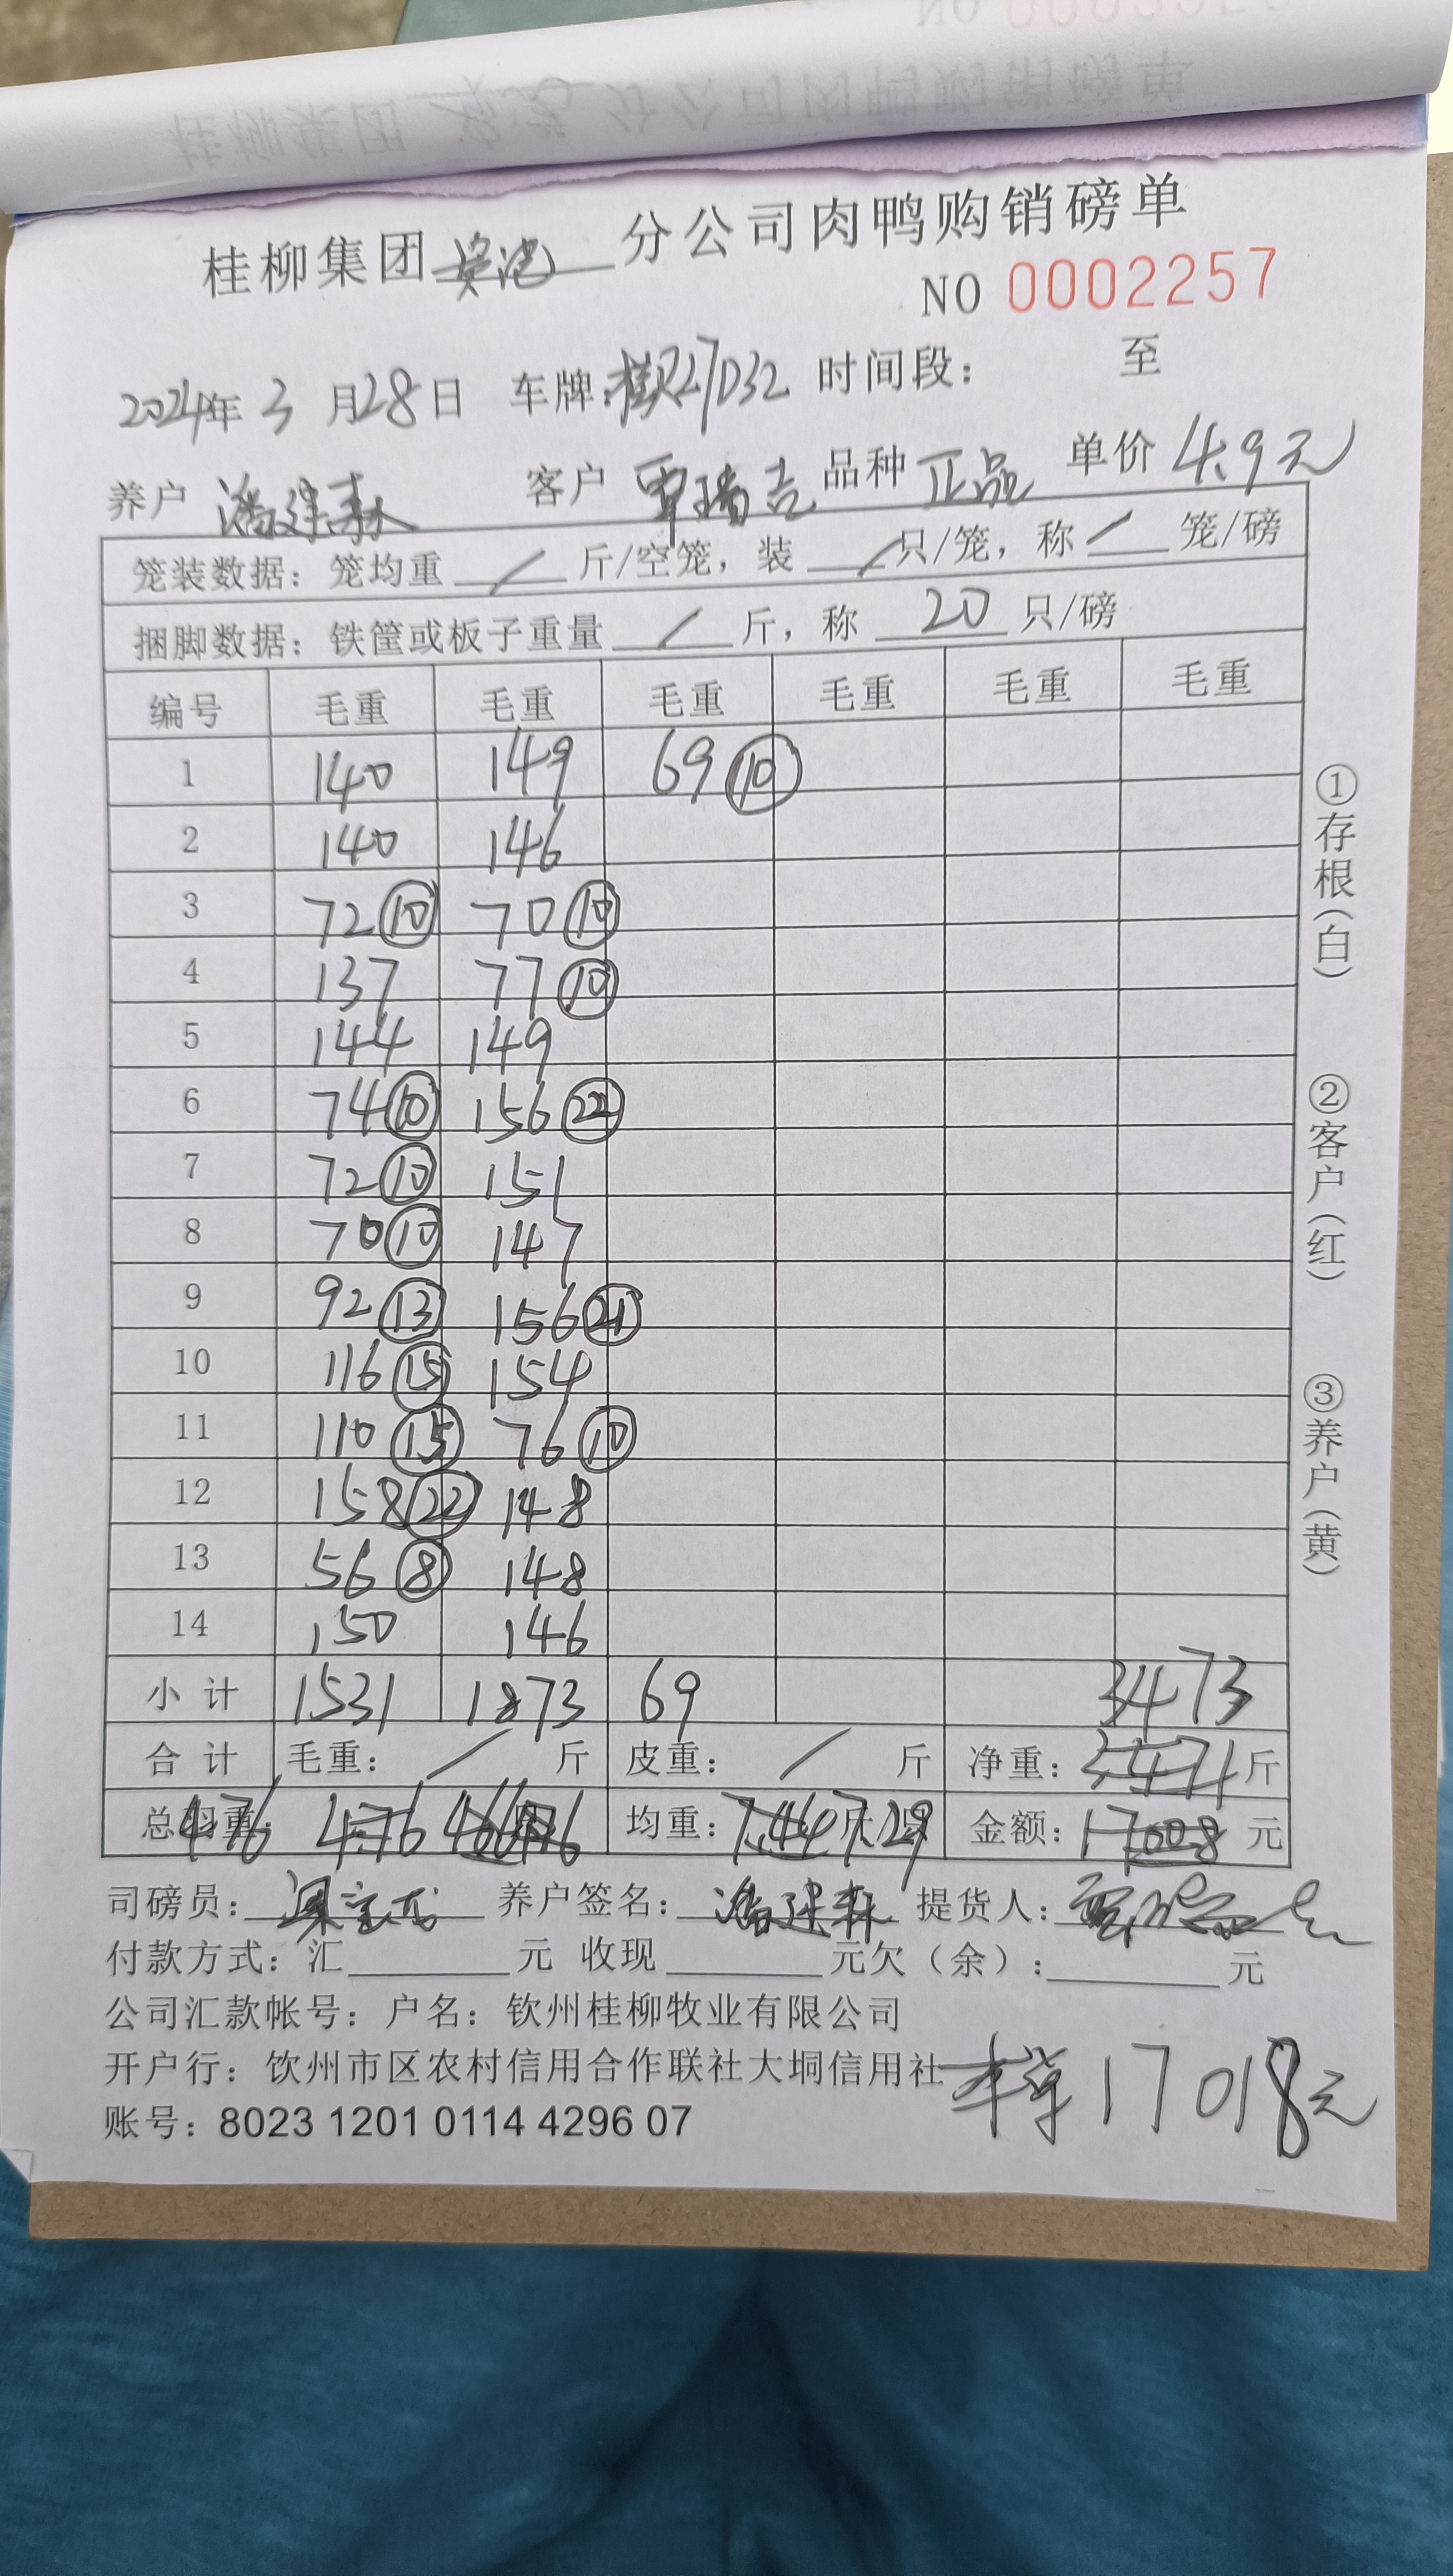 桂柳集团 分公司肉鸭购销磅单
NO 0002257
2024年 3 月 28 日 车牌: 时间段: 至
养户 潘建森 客户 覃瑞吉 品种 正品 单价 4.9元
笼装数据: 笼均重 / 斤/空笼, 装 / 只/笼, 称 / 笼/磅
捆脚数据: 铁筐或板子重量 / 斤, 称 20 只/磅
编号 毛重 毛重 毛重 毛重 毛重 毛重
1 140 149 69 ⑩
2 140 146
3 72 ⑩ 70 ⑩
4 137 77 ⑩
5 144 149
6 74 ⑩ 156 ㉒
7 72 ⑩ 151
8 70 ⑩ 147
9 92 ⑬ 156 ㉑
10 116 ⑮ 154
11 110 ⑮ 76 ⑩
12 158 ㉒ 148
13 56 ⑧ 148
14 150 146
小计 1531 1873 69 3473
合计 毛重: / 斤 皮重: / 斤 净重: 3471 斤
476 476 466 476 均重: 7.44 7.29 金额: 17008 元
司磅员: 养户签名: 潘建森 提货人:
付款方式: 汇 元 收现 元欠(余): 元
公司汇款帐号: 户名: 钦州桂柳牧业有限公司
开户行: 饮州市区农村信用合作联社大垌信用社
账号: 8023 1201 0114 4296 07
本单17018元
①存根(白)
②客户(红)
③养户(黄)